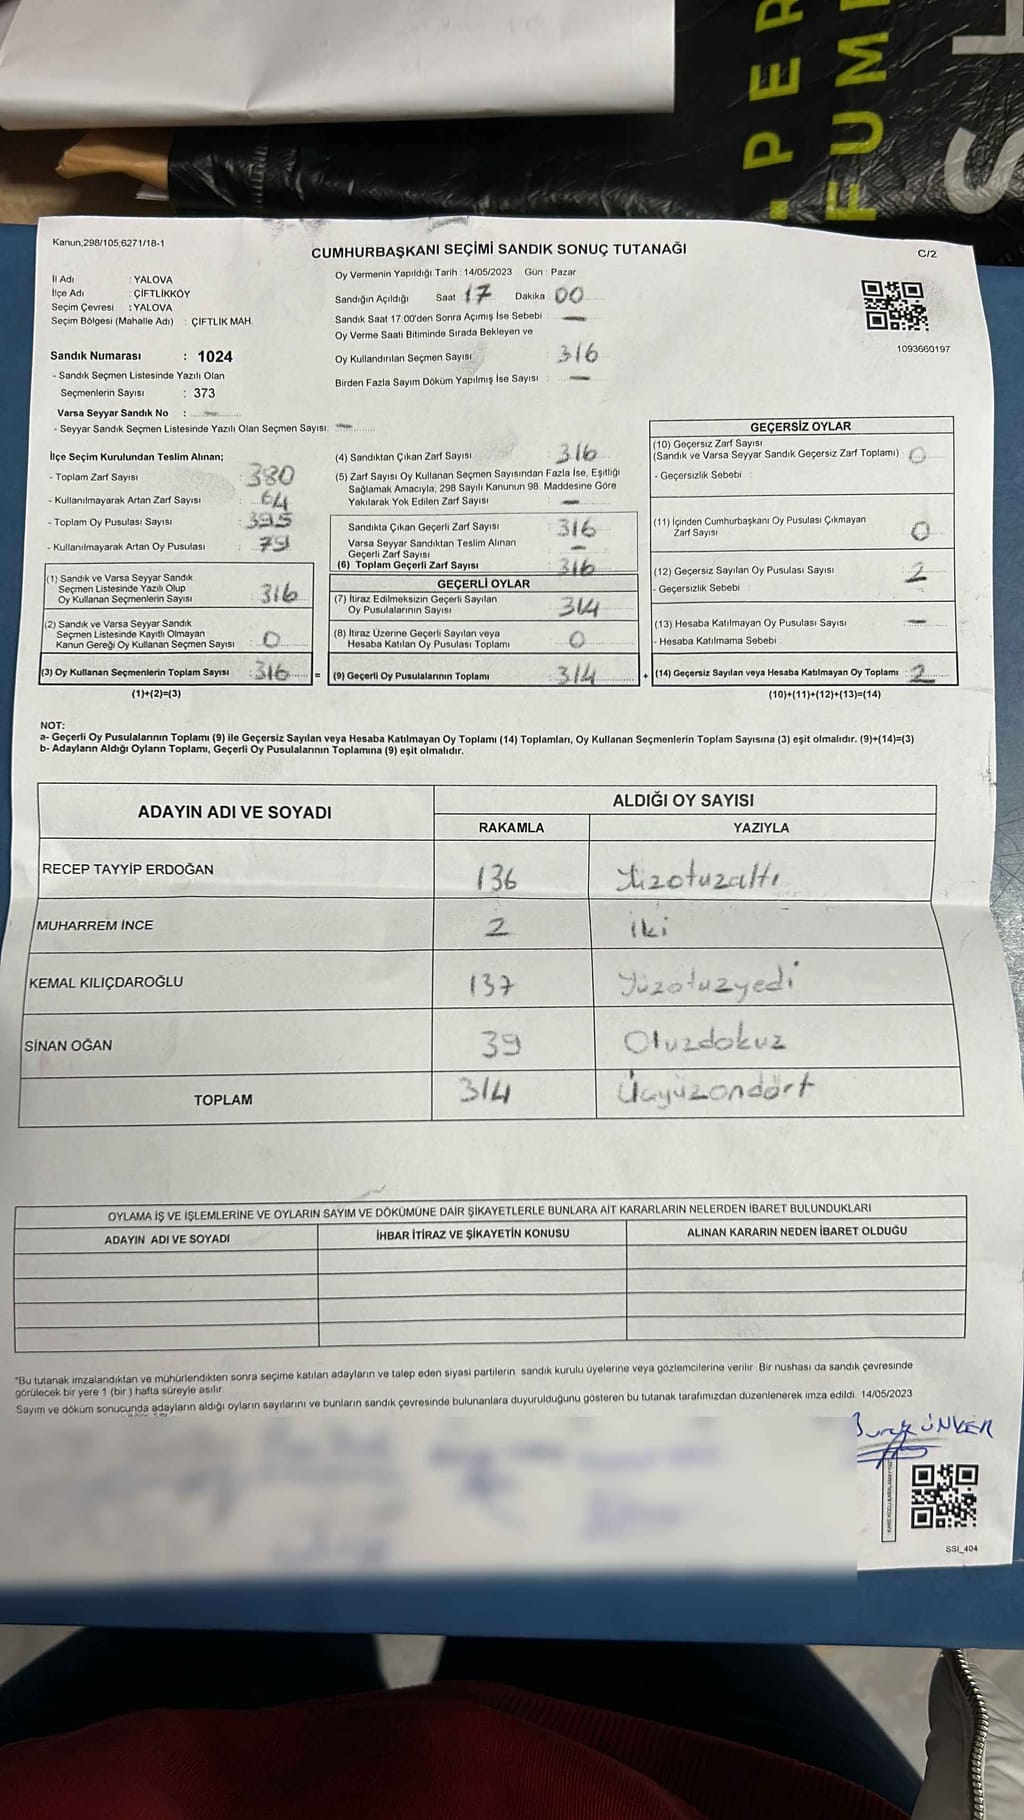 PER
FUM
Kanun,298/105,6271/18-1
CUMHURBAŞKANI SEÇİMİ SANDIK SONUÇ TUTANAĞI
C/2
İl Adı : YALOVA
İlçe Adı : ÇİFTLİKKÖY
Seçim Çevresi : YALOVA
Seçim Bölgesi (Mahalle Adı) : ÇİFTLİK MAH.
Sandık Numarası : 1024
- Sandık Seçmen Listesinde Yazılı Olan
Seçmenlerin Sayısı : 373
Varsa Seyyar Sandık No : —
- Seyyar Sandık Seçmen Listesinde Yazılı Olan Seçmen Sayısı: —
Oy Vermenin Yapıldığı Tarih : 14/05/2023 Gün : Pazar
Sandığın Açıldığı Saat : 17 Dakika : 00
Sandık Saat 17.00'den Sonra Açımış İse Sebebi : —
Oy Verme Saati Bitiminde Sırada Bekleyen ve
Oy Kullandırılan Seçmen Sayısı : 316
Birden Fazla Sayım Döküm Yapılmış İse Sayısı : —
1093660197
İlçe Seçim Kurulundan Teslim Alınan;
- Toplam Zarf Sayısı : 380
- Kullanılmayarak Artan Zarf Sayısı : 64
- Toplam Oy Pusulası Sayısı : 395
- Kullanılmayarak Artan Oy Pusulası : 79
(1) Sandık ve Varsa Seyyar Sandık
Seçmen Listesinde Yazılı Olup
Oy Kullanan Seçmenlerin Sayısı : 316
(2) Sandık ve Varsa Seyyar Sandık
Seçmen Listesinde Kayıtlı Olmayan
Kanun Gereği Oy Kullanan Seçmen Sayısı : 0
(3) Oy Kullanan Seçmenlerin Toplam Sayısı : 316 =
(1)+(2)=(3)
(4) Sandıktan Çıkan Zarf Sayısı : 316
(5) Zarf Sayısı Oy Kullanan Seçmen Sayısından Fazla İse, Eşitliği
Sağlamak Amacıyla; 298 Sayılı Kanunun 98. Maddesine Göre
Yakılarak Yok Edilen Zarf Sayısı : —
Sandıkta Çıkan Geçerli Zarf Sayısı : 316
Varsa Seyyar Sandıktan Teslim Alınan
Geçerli Zarf Sayısı : —
(6) Toplam Geçerli Zarf Sayısı : 316
GEÇERLİ OYLAR
(7) İtiraz Edilmeksizin Geçerli Sayılan
Oy Pusulalarının Sayısı : 314
(8) İtiraz Üzerine Geçerli Sayılan veya
Hesaba Katılan Oy Pusulası Toplamı : 0
(9) Geçerli Oy Pusulalarının Toplamı : 314 +
GEÇERSİZ OYLAR
(10) Geçersiz Zarf Sayısı
(Sandık ve Varsa Seyyar Sandık Geçersiz Zarf Toplamı) : 0
- Geçersizlik Sebebi :
(11) İçinden Cumhurbaşkanı Oy Pusulası Çıkmayan
Zarf Sayısı : 0
(12) Geçersiz Sayılan Oy Pusulası Sayısı : 2
- Geçersizlik Sebebi :
(13) Hesaba Katılmayan Oy Pusulası Sayısı : —
- Hesaba Katılmama Sebebi :
(14) Geçersiz Sayılan veya Hesaba Katılmayan Oy Toplamı : 2
(10)+(11)+(12)+(13)=(14)
NOT:
a- Geçerli Oy Pusulalarının Toplamı (9) ile Geçersiz Sayılan veya Hesaba Katılmayan Oy Toplamı (14) Toplamları, Oy Kullanan Seçmenlerin Toplam Sayısına (3) eşit olmalıdır. (9)+(14)=(3)
b- Adayların Aldığı Oyların Toplamı, Geçerli Oy Pusulalarının Toplamına (9) eşit olmalıdır.
ADAYIN ADI VE SOYADI ALDIĞI OY SAYISI
RAKAMLA YAZIYLA
RECEP TAYYİP ERDOĞAN 136 Yüzotuzaltı
MUHARREM İNCE 2 iki
KEMAL KILIÇDAROĞLU 137 Yüzotuzyedi
SİNAN OĞAN 39 Otuzdokuz
TOPLAM 314 Üçyüzondört
OYLAMA İŞ VE İŞLEMLERİNE VE OYLARIN SAYIM VE DÖKÜMÜNE DAİR ŞİKAYETLERLE BUNLARA AİT KARARLARIN NELERDEN İBARET BULUNDUKLARI
ADAYIN ADI VE SOYADI İHBAR İTİRAZ VE ŞİKAYETİN KONUSU ALINAN KARARIN NEDEN İBARET OLDUĞU
*Bu tutanak imzalandıktan ve mühürlendikten sonra seçime katılan adayların ve talep eden siyasi partilerin sandık kurulu üyelerine veya gözlemcilerine verilir. Bir nüshası da sandık çevresinde
görülecek bir yere 1 (bir) hafta süreyle asılır.
Sayım ve döküm sonucunda adayların aldığı oyların sayılarını ve bunların sandık çevresinde bulunanlara duyurulduğunu gösteren bu tutanak tarafımızdan düzenlenerek imza edildi. 14/05/2023
ÜNVER
SSI_404